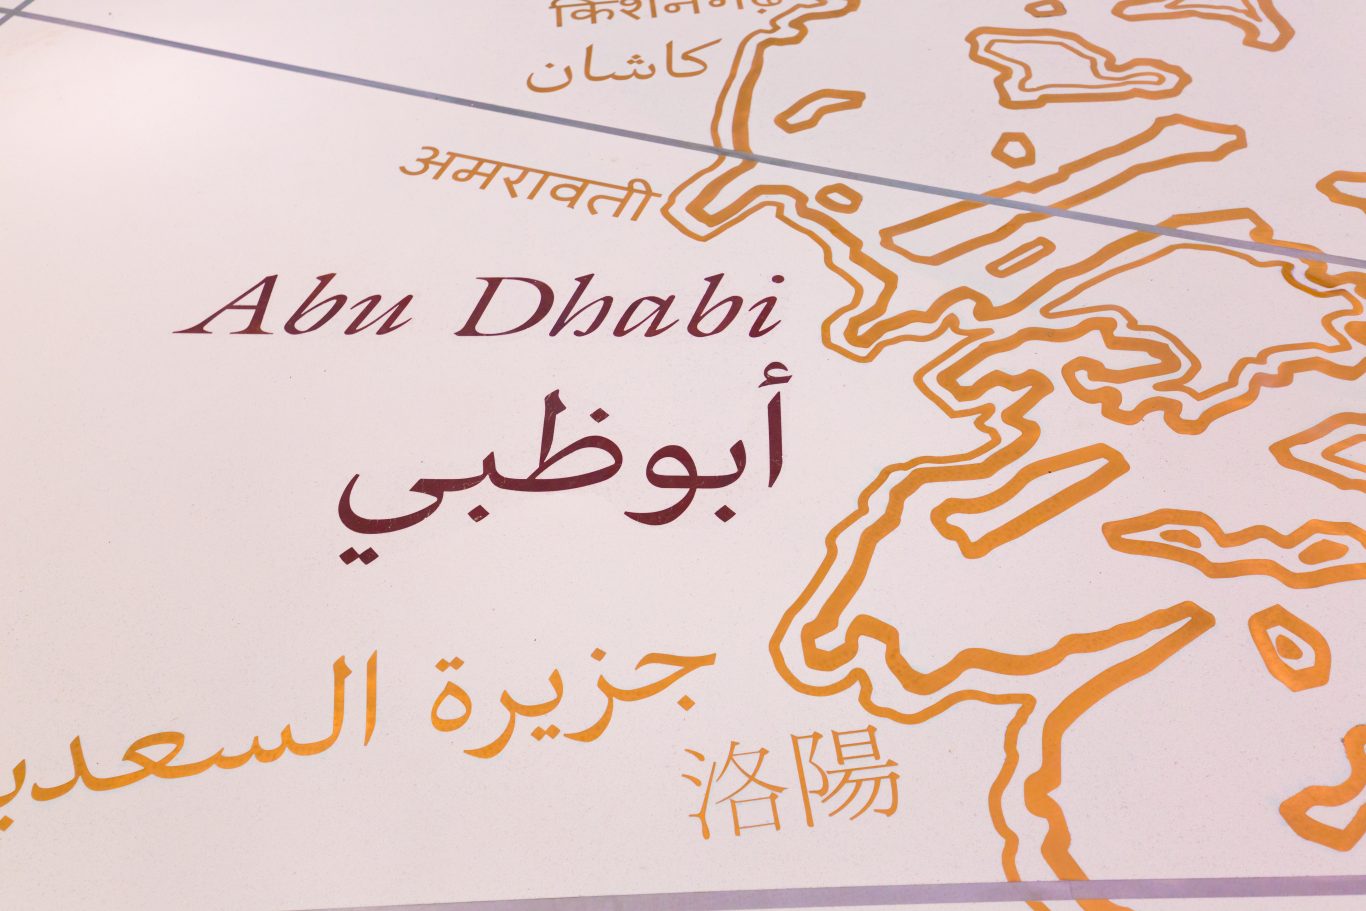 किशनगढ़
كاشان
अमरावती
Abu Dhabi
أبوظبي
جزيرة
洛陽